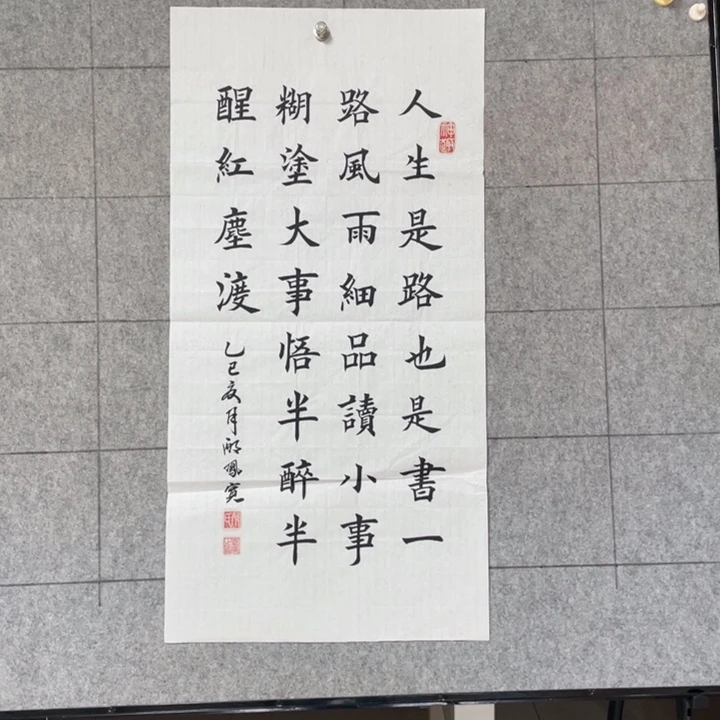 人生是路也是書一
路風雨細品讀小事
糊塗大事悟半醉半
醒紅塵渡
乙巳夏月